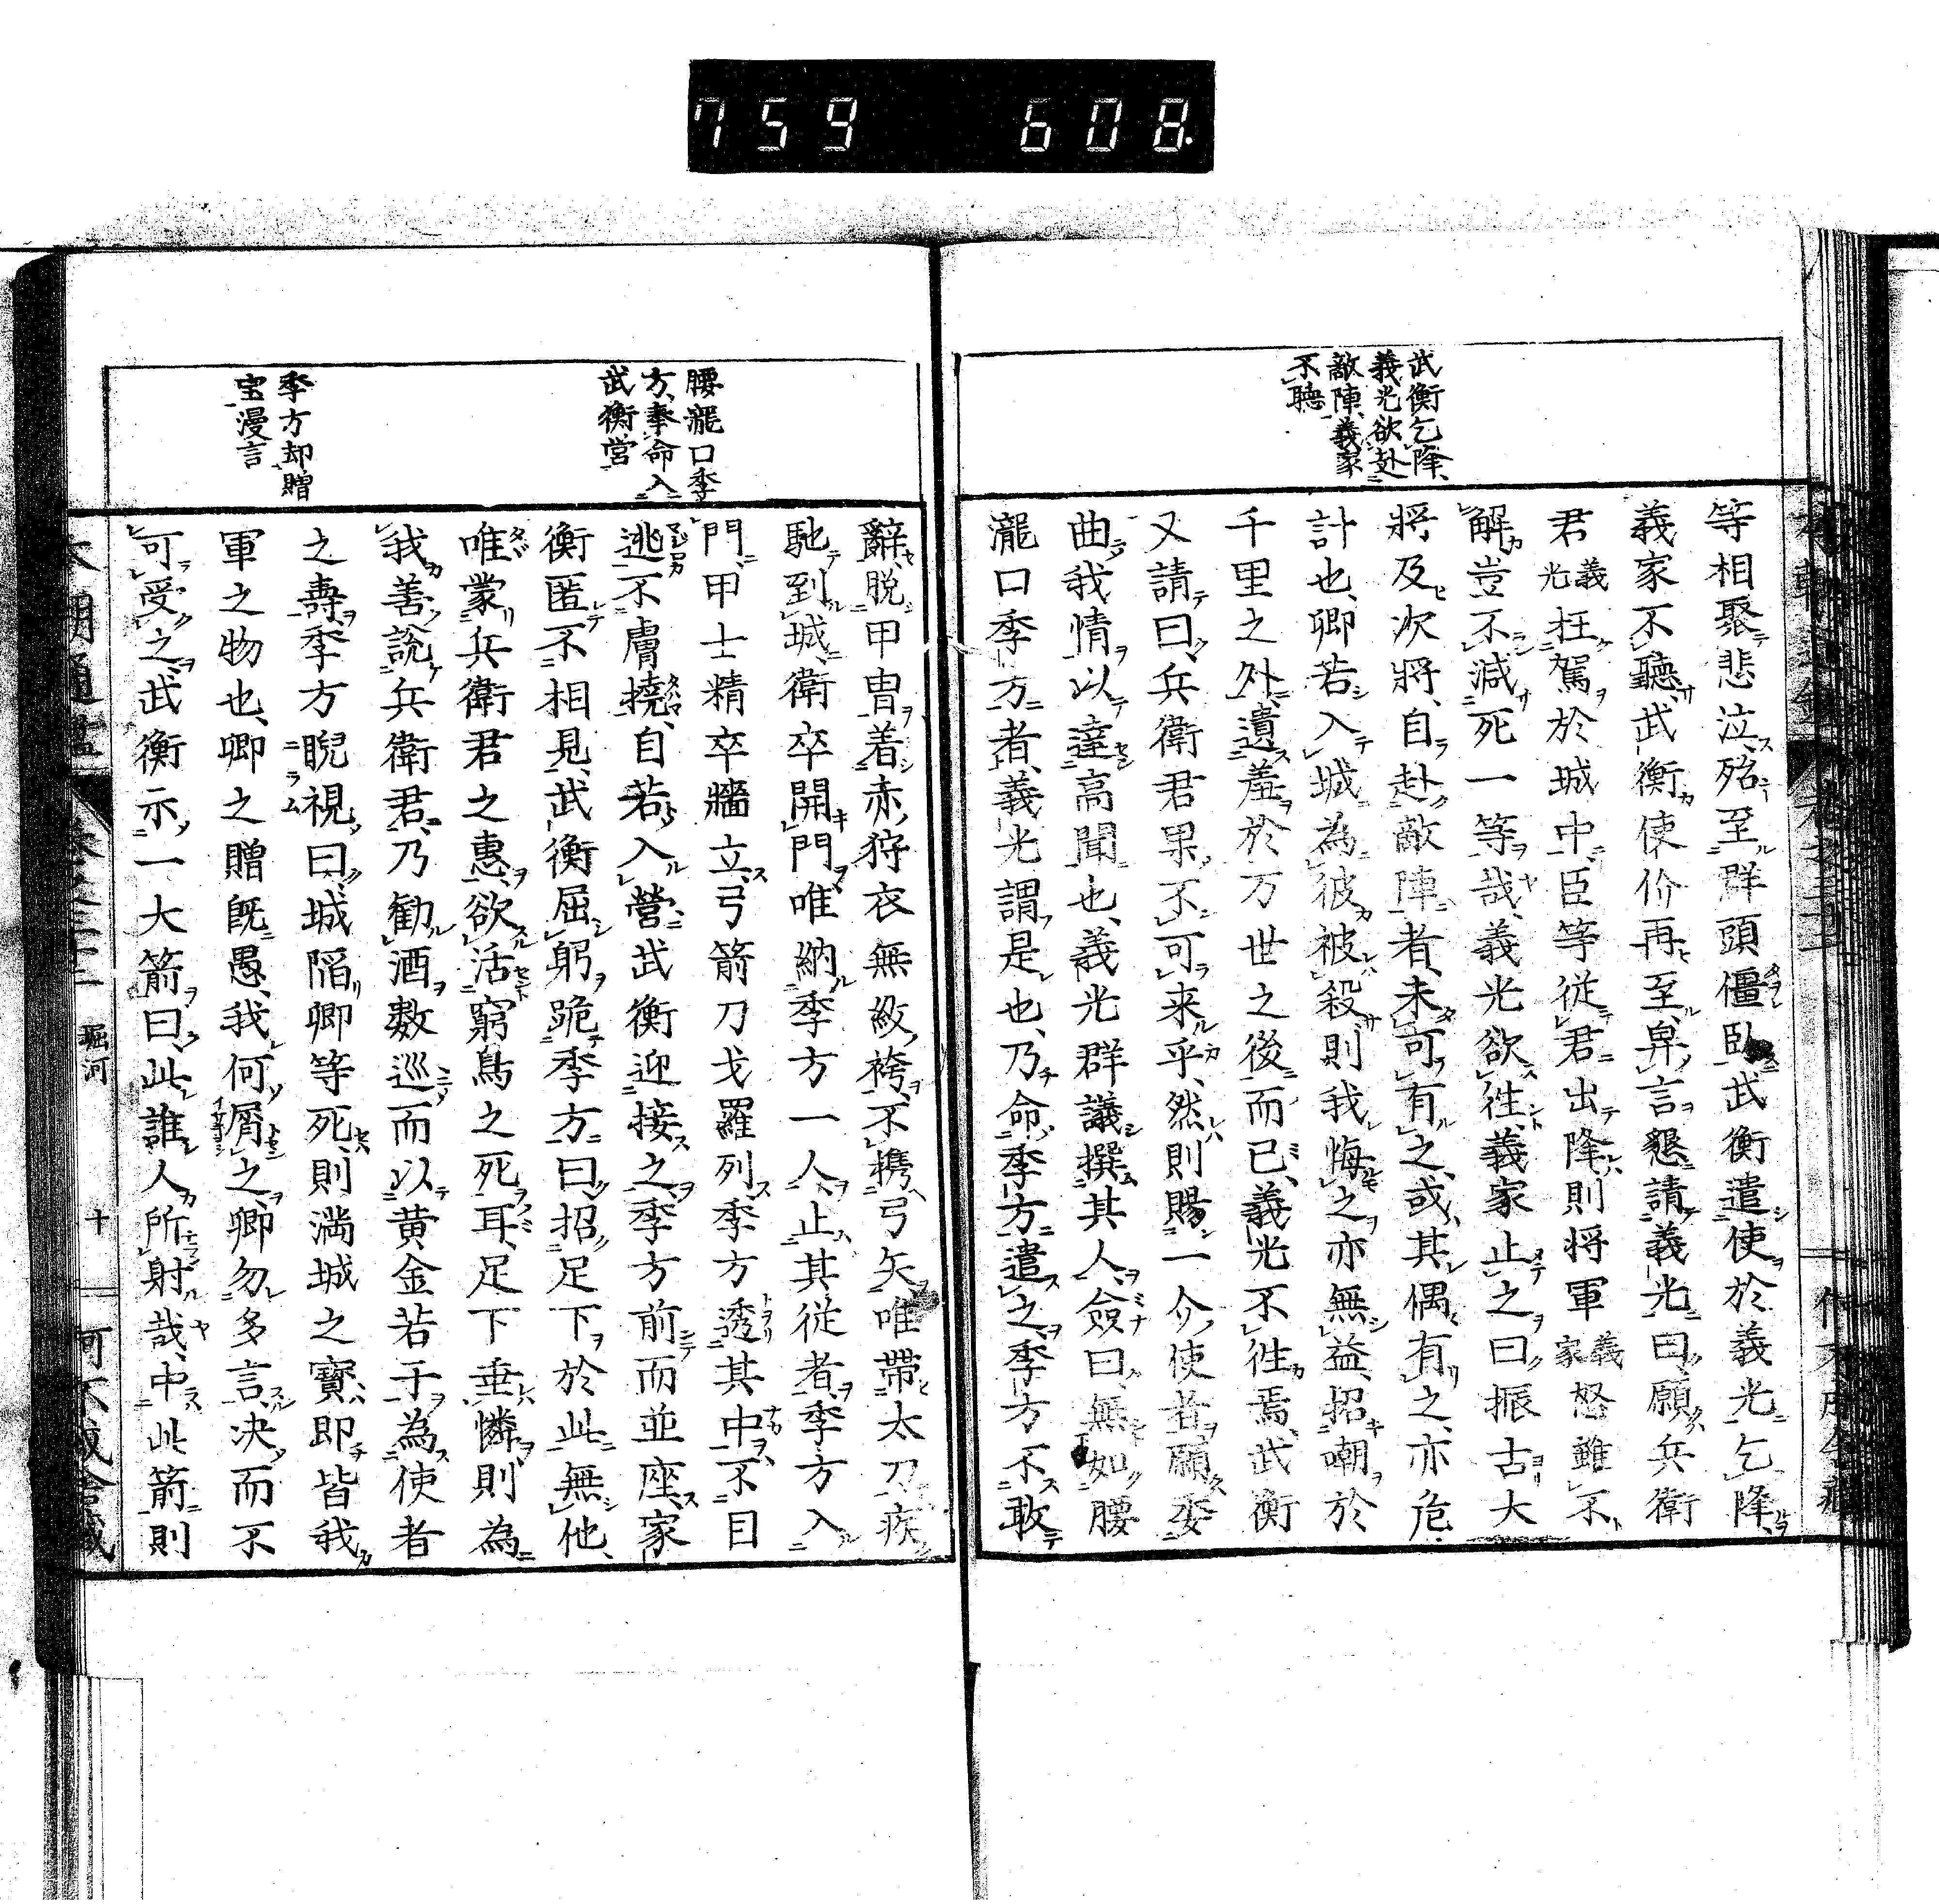 759 608
武衡乞降、
義光欲赴
敵陣、義家
不聽
等相聚悲泣、殆至群頭僵臥武衡遣使於義光乞降、
義家不聽、武衡使价再至、卑言懇請義光曰、願兵衛
君義光枉駕於城中、臣等従君出降、則将軍義家怒雖不
解豈不減死一等哉、義光欲往、義家止之曰振古大
將及次將、自赴敵陣者、未可有之、或其偶有之、亦危
計也、卿若入城為彼被殺則我悔之亦無益、招嘲於
千里之外、遺羞於万世之後而已、義光不往焉、武衡
又請曰、兵衛君果不可来乎、然則賜一介使者願委
曲我情以達高聞也、義光群議撰其人、僉曰、無如腰
瀧口季方者、義光謂是也、乃命季方遣之、季方不敢
腰瀧口季
方、奉命入
武衡営
季方却贈
宝漫言
辭、脱甲冑着赤狩衣無紋袴、不携弓矢唯帯太刀疾
馳到城、衛卒開門唯納季方一人、止其従者、季方入
門、甲士精卒牆立、弓箭刀戈羅列季方透其中、不目
逃不膚撓、自若入営武衡迎接之、季方前而並座、家
衡匿不相見、武衡屈躬跪季方曰、招足下於此無他、
唯蒙兵衛君之惠、欲活窮鳥之死耳、足下垂憐則為
我善説兵衛君、乃勧酒數巡而以黄金若干為使者
之壽、季方睨視曰、城陥卿等死、則満城之寶即皆我
軍之物也、卿之贈既愚、我何屑之、卿勿多言、決而不
可受之、武衡示一大箭曰、此誰人所射哉、中此箭則
堀河
十